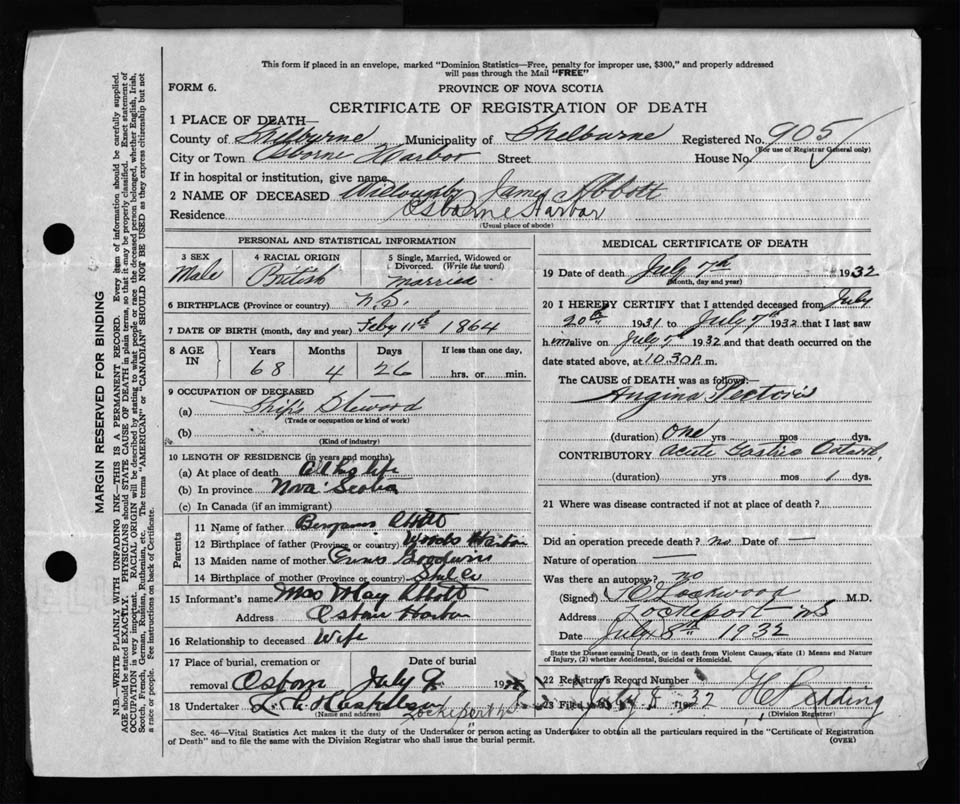 This form if placed in an envelope, marked "Dominion Statistics—Free, penalty for improper use, $300," and properly addressed
will pass through the Mail "FREE"
FORM 6.
PROVINCE OF NOVA SCOTIA
CERTIFICATE OF REGISTRATION OF DEATH
1 PLACE OF DEATH—
County of Shelburne Municipality of Shelburne Registered No. 905
(For use of Registrar General only)
City or Town Osborne Harbor Street House No.
If in hospital or institution, give name
2 NAME OF DECEASED Willoughby James Abbott
Residence Osborne Harbor
(Usual place of abode)
PERSONAL AND STATISTICAL INFORMATION
3 SEX 4 RACIAL ORIGIN 5 Single, Married, Widowed or
Divorced. (Write the word)
Male British Married
6 BIRTHPLACE (Province or country) N.S.
7 DATE OF BIRTH (month, day and year) Feby 11th 1864
8 AGE IN Years Months Days If less than one day,
68 4 26 hrs. or min.
9 OCCUPATION OF DECEASED
(a) Ship's Steward
(Trade or occupation or kind of work)
(b)
(Kind of industry)
10 LENGTH OF RESIDENCE (in years and months)
(a) At place of death All his life
(b) In province Nova Scotia
(c) In Canada (if an immigrant)
Parents
11 Name of father Benjamin Abbott
12 Birthplace of father (Province or country) Woods Harbor
13 Maiden name of mother Goodwin
14 Birthplace of mother (Province or country) Shel Co
15 Informant's name Mrs May Abbott
Address Osborn Harbor
16 Relationship to deceased Wife
17 Place of burial, cremation or Date of burial
removal Osborn July 9 19
18 Undertaker
(Name and address) Lockeport
MEDICAL CERTIFICATE OF DEATH
19 Date of death July 7th 1932
(Month, day and year)
20 I HEREBY CERTIFY that I attended deceased from July
20th 1931 to July 7th 1932 that I last saw
him alive on July 7th 1932 and that death occurred on the
date stated above, at 10.30 P. m.
The CAUSE OF DEATH was as follows:
Angina Pectoris
(duration) One yrs mos dys.
CONTRIBUTORY Acute Gastric
(duration) yrs mos 1 dys.
21 Where was disease contracted if not at place of death?
Did an operation precede death? no Date of —
Nature of operation —
Was there an autopsy? no
(Signed) Lockwood M.D.
Address Lockeport NS
Date July 8th 1932
State the Disease causing Death, or in death from Violent Causes, state (1) Means and Nature
of Injury, (2) whether Accidental, Suicidal or Homicidal.
22 Registrar's Record Number
23 Filed July 8 1932 H Redding
(Division Registrar)
Sec. 46—Vital Statistics Act makes it the duty of the Undertaker or person acting as Undertaker to obtain all the particulars required in the "Certificate of Registration
of Death" and to file the same with the Division Registrar who shall issue the burial permit.
(OVER)
MARGIN RESERVED FOR BINDING
N.B.—WRITE PLAINLY WITH UNFADING INK—THIS IS A PERMANENT RECORD. Every item of information should be carefully supplied.
AGE should be stated EXACTLY. PHYSICIANS should STATE CAUSE OF DEATH in plain terms, so that it may be properly classified. Exact statement of
OCCUPATION is very important. RACIAL ORIGIN will be described by stating to what people or race the deceased person belonged, whether English, Irish,
Scotch, French, German, Russian, Ruthenian, etc. The terms "AMERICAN" or "CANADIAN" SHOULD NOT BE USED as they express citizenship but not
a race or people. See instructions on back of Certificate.